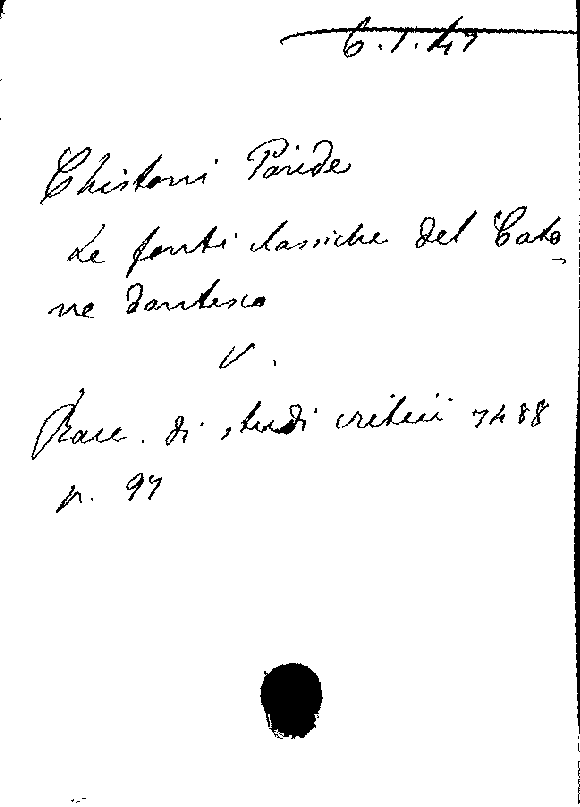 6.1.47
Chistoni Paride
Le fonti classiche del Cato
ne dantesco
V.
Racc. di studi critici 7488
p. 97